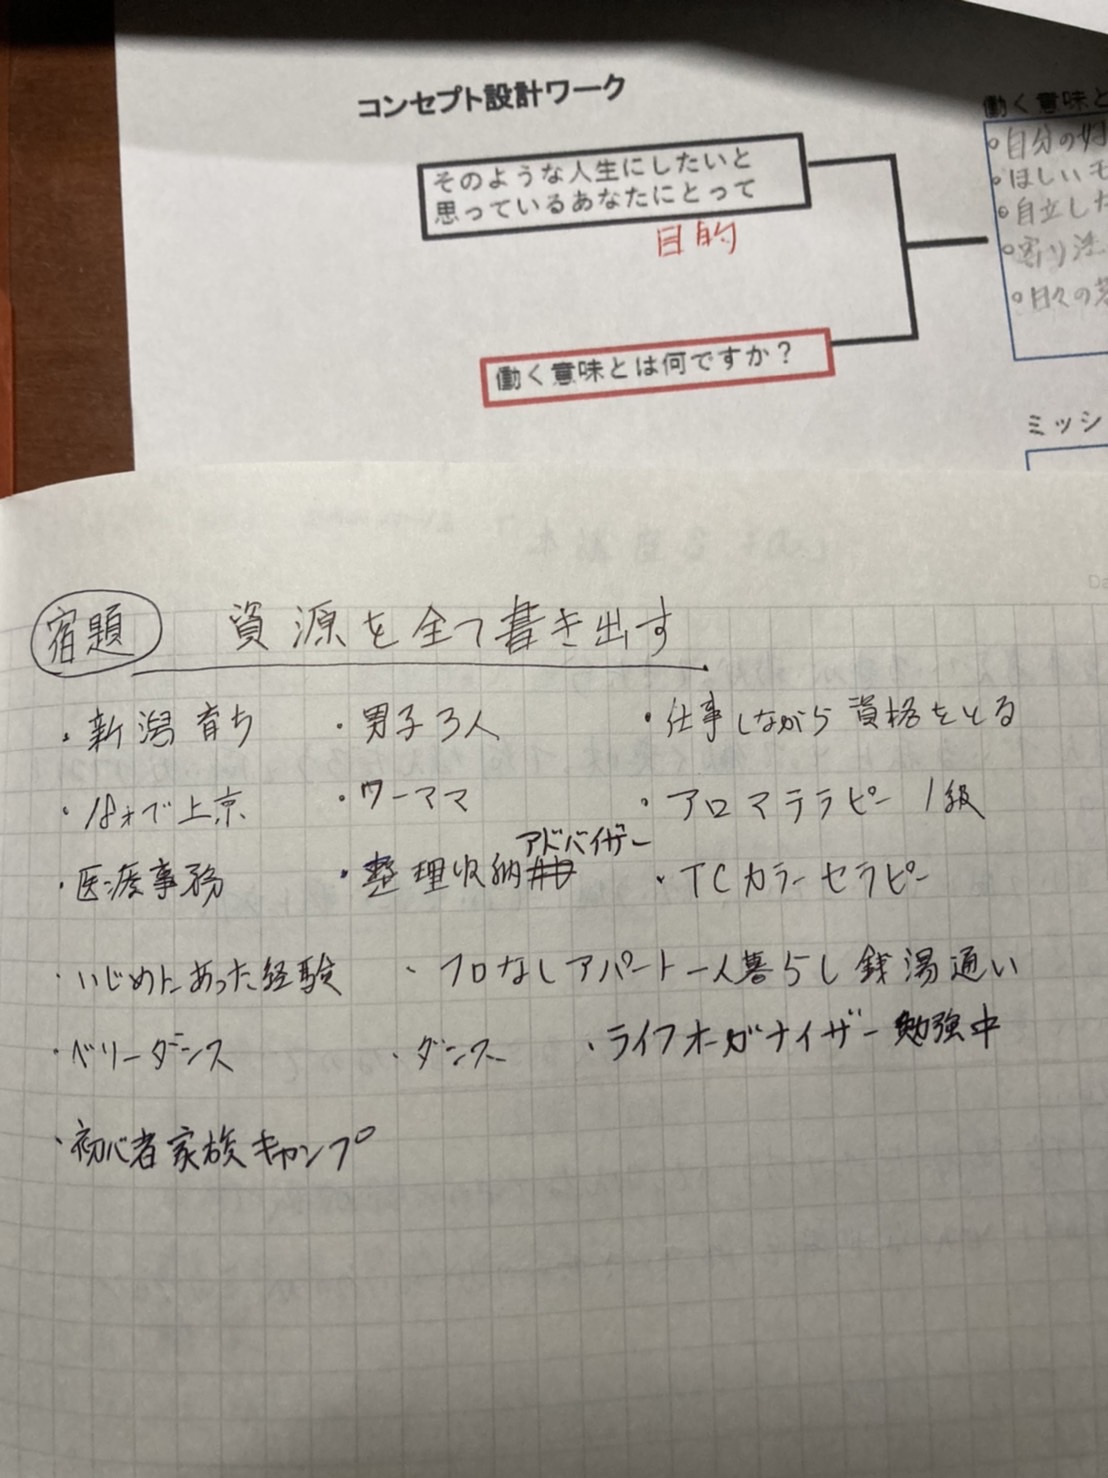 コンセプト設計ワーク
そのような人生にしたいと
思っているあなたにとって
目的
働く意味とは何ですか？
働く意味と
・自分の
・ほしいモ
・自立した
・寄り添
・日々の
ミッシ
宿題 資源を全て書き出す
・新潟育ち ・男子3人 ・仕事しながら資格をとる
・18才で上京 ・ワーママ ・アロマテラピー1級
・医療事務 ・整理収納アドバイザー ・TCカラーセラピー
・いじめにあった経験 ・フロなしアパート一人暮らし銭湯通い
・ベリーダンス ・ダンス ・ライフオーガナイザー勉強中
・初心者家族キャンプ